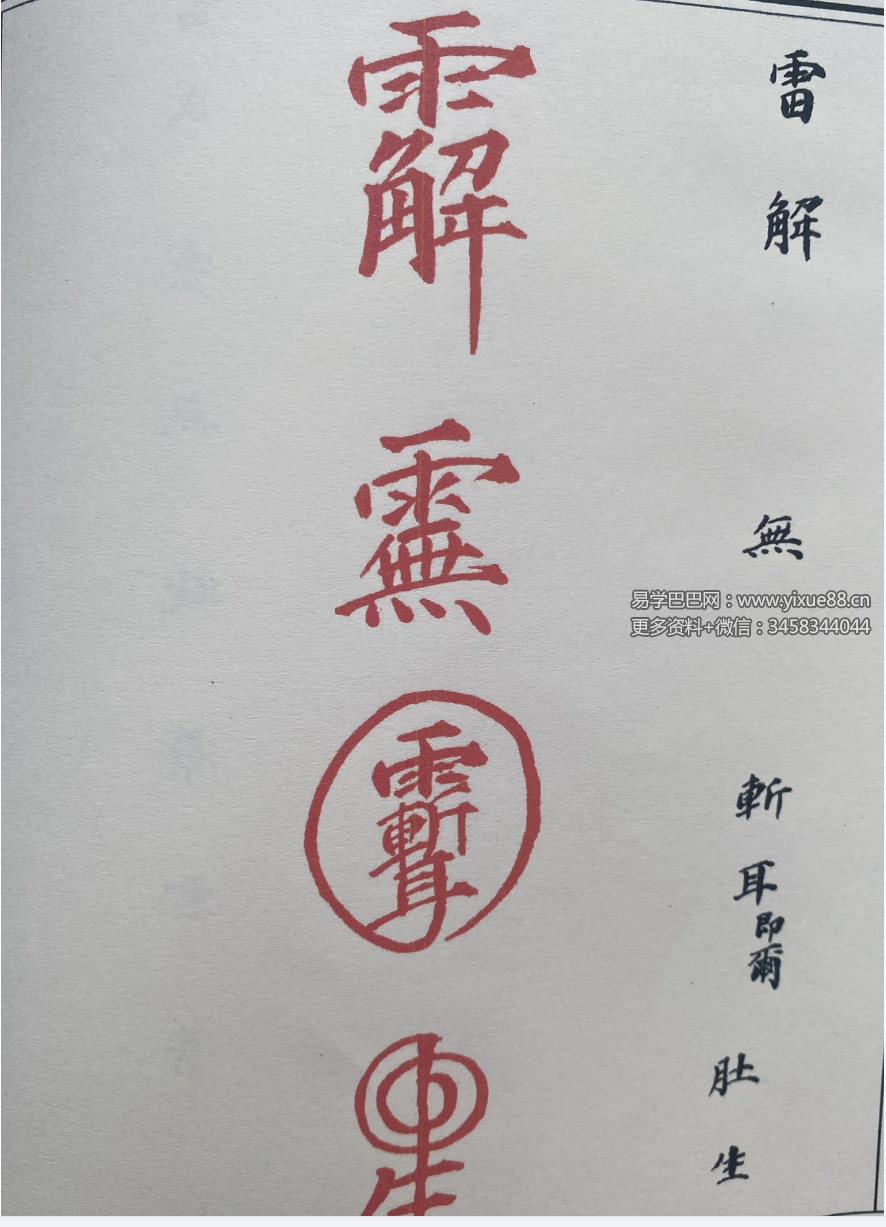 雷
解
無
斬
耳
即爾
肚
生
易学巴巴网：www.yixue88.cn
更多资料+微信：3458344044